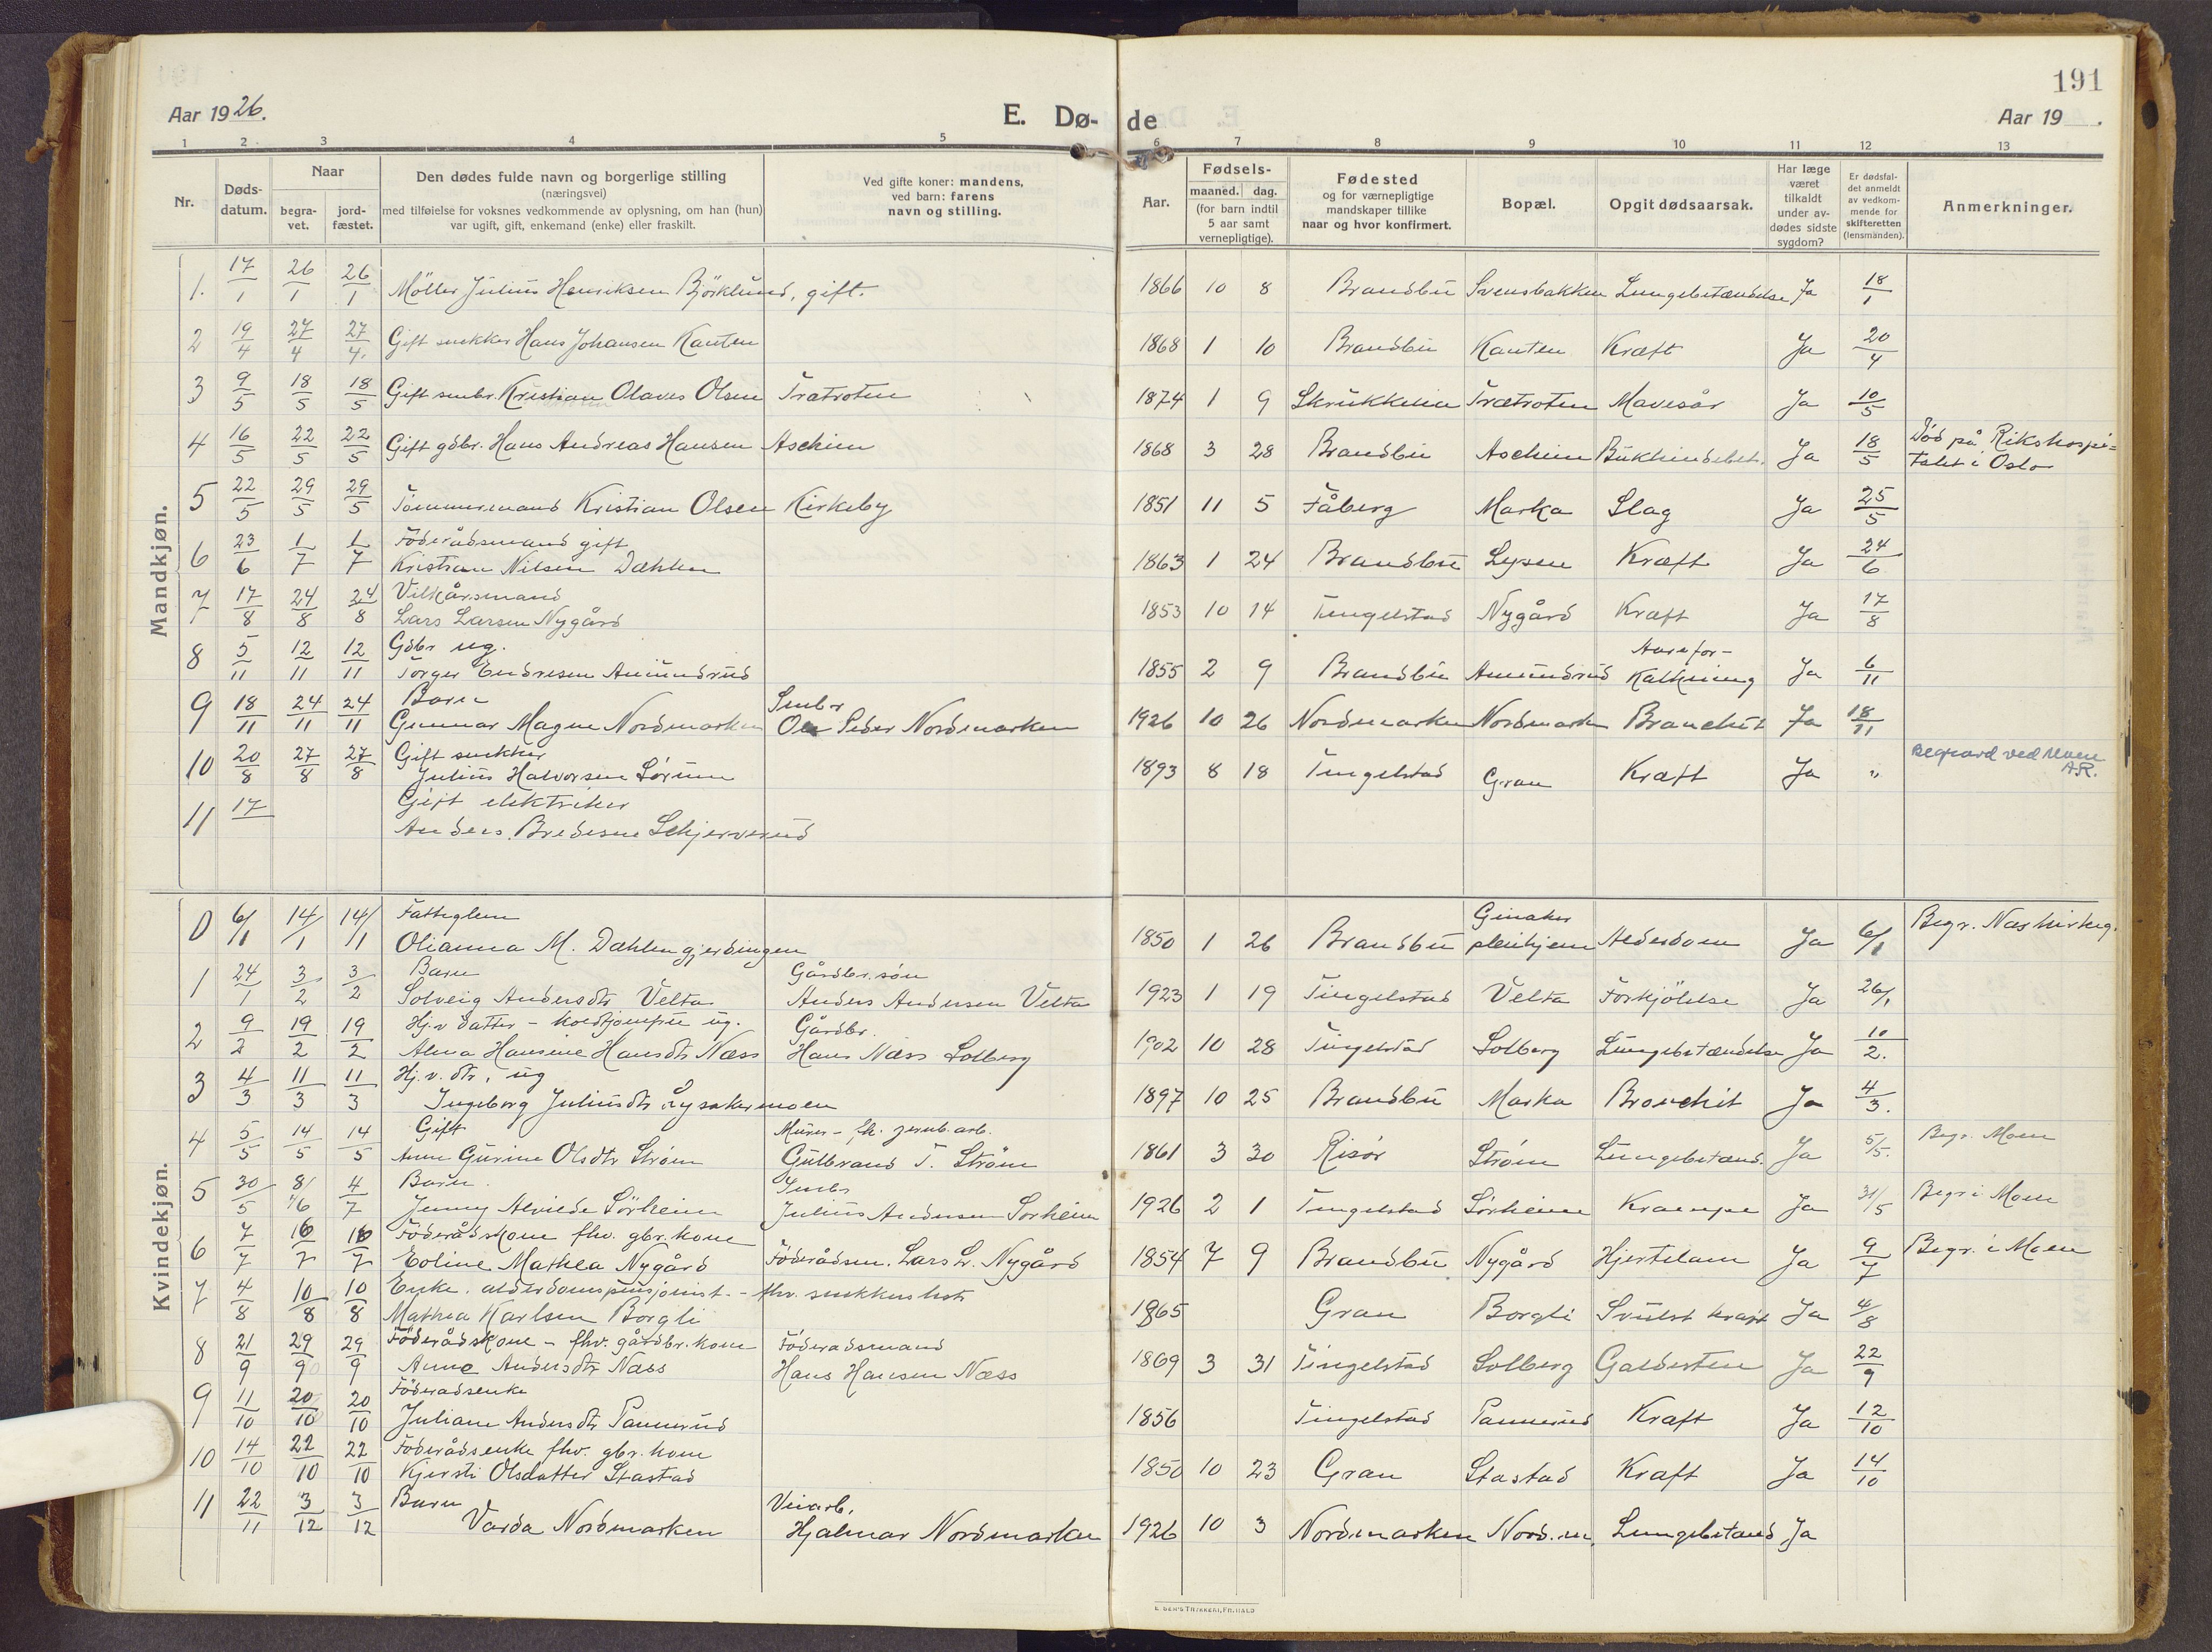 191
Aar 1926.
E. Dø-
de
Aar 19 .
1 2 3 4 5 6 7 8 9 10 11 12 13
Nr.
Døds-
datum.
Naar
begra-
vet.
jord-
fæstet.
Den dødes fulde navn og borgerlige stilling
(næringsvei)
med tilføielse for voksnes vedkommende av oplysning, om han (hun)
var ugift, gift, enkemand (enke) eller fraskilt.
Ved gifte koner: mandens,
ved barn: farens
navn og stilling.
Aar.
Fødsels-
maaned. dag.
(for barn indtil
5 aar samt
vernepligtige).
Fødested
og for værnepligtige
mandskaper tillike
naar og hvor konfirmert.
Bopæl.
Opgit dødsaarsak.
Har læge
været
tilkaldt
under av-
dødes sidste
sygdom?
Er dødsfal-
det anmeldt
av vedkom-
mende for
skifteretten
(lensmanden).
Anmerkninger.
Mandkjøn.
1. 17/1 26/1 26/1 Möller Julius Henriksen Björklund, gift. 1866 10 8 Brandbu Svensbakken Lungebetændelse Ja 18/1
2 19/4 27/4 27/4. Gift snekker Hans Johansen Kanten 1868 1 10 Brandbu Kanten Kræft Ja 20/4
3 9/5 18/5 18/5 Gift smbr. Kristian Olaves Olsen Trætroten 1874 1 9 Skrukkelia Trætroten Mavesår Ja 10/5
4 16/5 22/5 22/5 Gift gdbr. Hans Andreas Hansen Ascheim 1868 3 28 Brandbu Ascheim Bukhindebet. Ja 18/5 Död på Rikshospi=
talet i Oslo
5 22/5 29/5 29/5 Tømmermand Kristian Olsen Kirkeby 1851 11 5 Fåberg Marka Slag Ja 25/5
6 23/6 1/7 1/7 Föderådsmand gift
Kristian Nilsen Dæhlen 1863 1 24 Brandbu Lysen Kræft Ja 24/6
7 17/8 24/8 24/8 Vilkårsmand
Lars Larsen Nygård 1853 10 14 Tingelstad Nygård Kræft Ja 17/8
8 5/11 12/11 12/11 Gdbr ug.
Torger Endresen Amundrud 1855 2 9 Brandbu Amundrud Aarefor-
kalkning Ja 6/11
9 18/11 24/11 24/11 Barn Smbr
Gunnar Magne Nordmarken Ole Peder Nordmarken 1926 10 26 Nordmarken Nordmark Bronchit Ja 18/11
10 20/8 27/8 27/8 Gift snekker
Julius Halvorsen Sörum 1893 8 18 Tingelstad Gran Kræft Ja " Begravd ved Moen
A.R.
11 17 Gift elektriker
Anders Bredesen Schjerverud
Kvindekjøn.
0 6/1 14/1 14/1 Fattiglem
Olianna M. Dæhlengjerdingen 1850 1 26 Brandbu Ginaker
pleiehjem Alderdom Ja 6/1 Begr. Næs kirkeg.
1 24/1 3/2 3/2 Barn Gårdbr. søn
Solveig Andersdtr Velta Anders Andersen Velta 1923 1 19 Tingelstad Velta Forkjölelse Ja 26/1
2 9/2 19/2 19/2 Hj.v datter - ug. Gårdbr.
Alma Hansine Hansdtr Næss Hans Næss Solberg 1902 10 28 Tingelstad Solberg Lungebetændelse Ja 10/2.
3 4/3 11/3 11/3 Hj. v. dtr, ug
Ingeborg Juliusdtr Rysakermoen 1897 10 25 Brandbu Marka Bronchit Ja 4/3.
4 5/5 14/5 14/5 Gift Murer - fh. jernb. arb.
Anne Gurine Olsdtr Ström Gulbrand T. Ström 1861 3 30 Risör Ström Lungebetænd. Ja 5/5. Begr. Moen
5 30/5 8/6 4/7 Barn. Smbr
Jenny Alvilde Sörheim Julius Andersen Sörheim 1926 2 1 Tingelstad Sörheim Krampe Ja 31/5 Begr i Moen
6 7/7 16/7 16/7 Föderådskone fhv. gbr. kone
Eoline Mathea Nygård Föderådsm. Lars L. Nygård 1854 7 9 Brandbu Nygård Hjertelam Ja 9/7 Begr. i Moen
7 4/8 10/8 10/8 Enke. alderdomspensjonist. - fhv. snekkers
Mathea Karlsen Borgli 1865 Gran Borgli Svulst kræft Ja 4/8
8 21/9 29/9 29/9 Föderådskone - fhv. gårdbr. kone Föderadsmand
Anne Andersdtr Næss Hans Hansen Næss 1869 3 31 Tingelstad Solberg Galdesten Ja 22/9
9 11/10 20/10 20/10 Föderadsenke
Juliane Andersdtr Pannerud 1856 Tingelstad Pannerud Kræft Ja 12/10
10 14/10 22/10 22/10 Föderådsenke fhv. gbr. kone
Kjersti Olsdatter Stastad 1850 10 23 Gran Stastad Kræft Ja 14/10
11 22/11 3/12 3/12 Barn Veiarb.
Varda Nordmarken Hjalmar Nordmarken 1926 10 3 Nordmarken Nord.m. Lungebetænd Ja